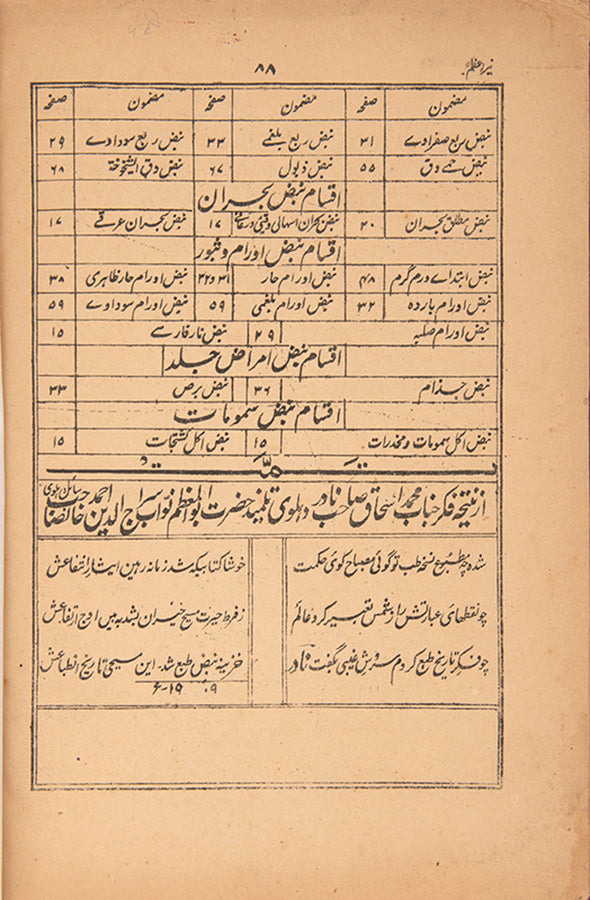 نیر اعظم
۸۸
مضمون صفحہ مضمون صفحہ مضمون صفحہ
نبض ربع صفراوے ۳۱ نبض ربع بلغمے ۳۳ نبض ربع سوداوے ۲۹
نبض حمے دق ۵۵ نبض ذبول ۶۷ نبض دق الشیخوختہ ۶۸
اقسام نبض بحران
نبض مطلق بحران ۲۰ نبض بحران اسہالی وقئی و رعافی ۱۷ نبض بحران عرقے ۱۷
اقسام نبض اورام و ثبور
نبض ابتداے ورم گرم ۴۸ نبض اورام حار ۳۱ و ۳۲ نبض اورام حار ظاہری ۳۸
نبض اورام باردہ ۳۲ نبض اورام بلغمی ۵۹ نبض اورام سوداوے ۵۹
نبض اورام صلبہ ۲۹ نبض نار فارسے ۱۵
اقسام نبض امراض جلد
نبض جذام ۳۶ نبض برص ۳۳
اقسام نبض سمومات
نبض اکل سمومات و مخدرات ۱۵ نبض اکل کشتجات ۱۵
تمت
از نتیجہ فکر جناب محمد اسحاق صاحب نادر دہلوی تلمیذ حضرت ابو المعظم نواب سراج الدین احمد خانصاحب سائل دہلوی
شدہ چہ مطبوع نسخہ طب تو گوئی مصباح کوئی حکمت خوشا کتابیکہ شد زمانہ رہین ایثار انتفاعش
چو نقطہای عبارتش را ز شمس تعبیر کرد عالم ز فرط حیرت مسیح حیران بشد بہ بین اوج ارتفاعش
چو فکر تاریخ طبع کردم سروش غیبی بگفت نادر خزینہ نبض طبع شد۔ این مسیحی تاریخ انطباعش
۱۹۰۹ء